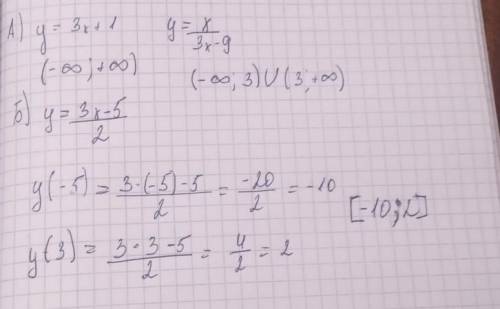 А) y = 3x+1    y = x/(3x-9)
(-∞; +∞)    (-∞; 3)∪(3; +∞)
Б) y = (3x-5)/2
y(-5) = (3·(-5)-5)/2 = -20/2 = -10
[-10; 2]
y(3) = (3·3-5)/2 = 4/2 = 2